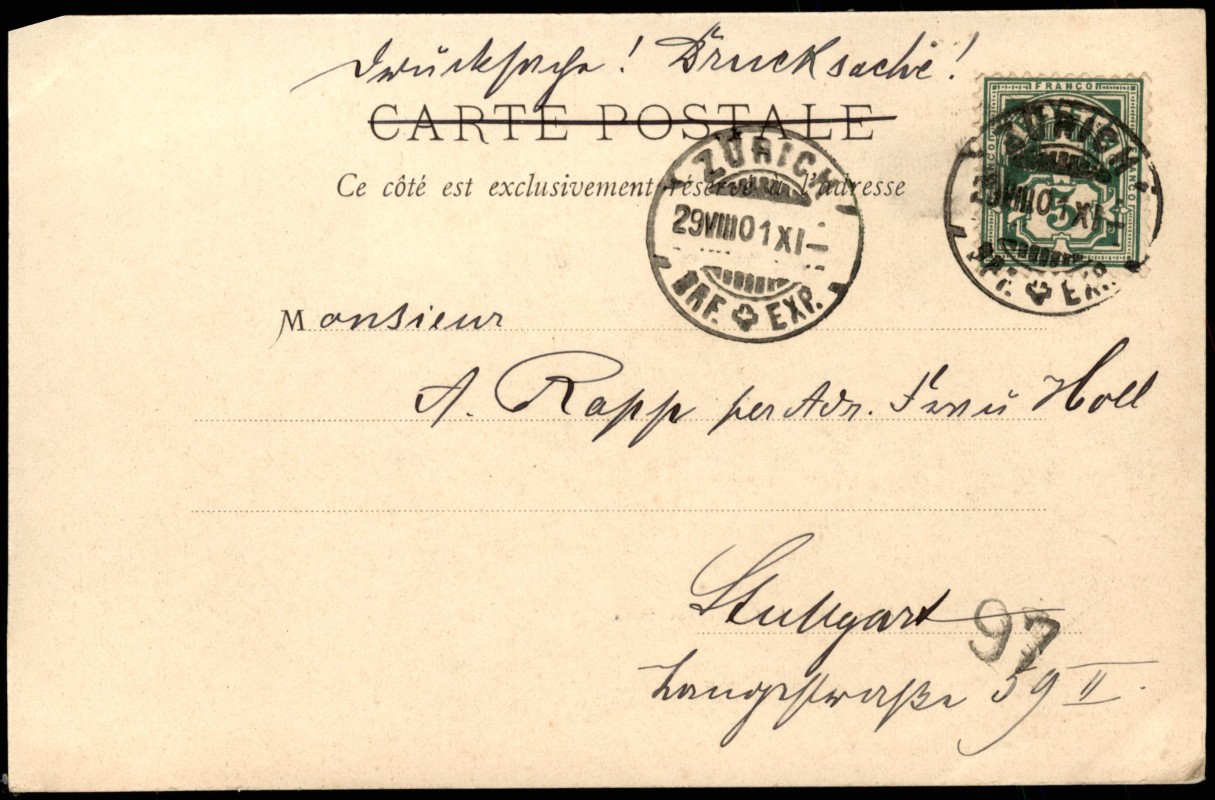 Drucksache! Drucksache!
CARTE POSTALE
Ce côté est exclusivement réservé à l'adresse
FRANCO
FRANCO
FRANCO
5
ZÜRICH
29 VIII 01 XI-
BRF. EXP.
ZÜRICH
29 VIII 01 XI-
BRF. EXP.
Monsieur
A. Rapp per Adr. Frau Holl
Stuttgart
97
Langestraße 59 II.